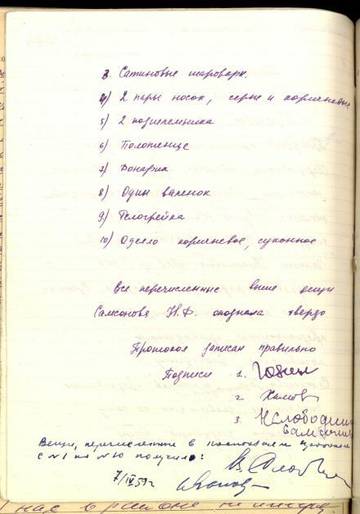 3. Сатиновые шаровары.
4) 2 пары носок, серые и коричневые
5) 2 подшлемника
6) Полотенце
7)
8) Один валенок
9) Телогрейка
10) Одеяло коричневое, суконное
Все перечисленные выше вещи
опознала твердо
Протокол записан правильно
Подписи 1. Юдин
2.
3. Н Слободин
Вещи, перечисленные в протоколе
с №1 по №10 получил:
7/IV 59 г